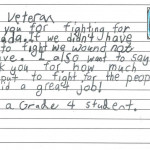 Veteran
you for fighting for
ada. If we didn't have
to fight we wound not
ave. I also want to say
k you for how much
put to fight for the people
d a great job!
a Grade 4 student.